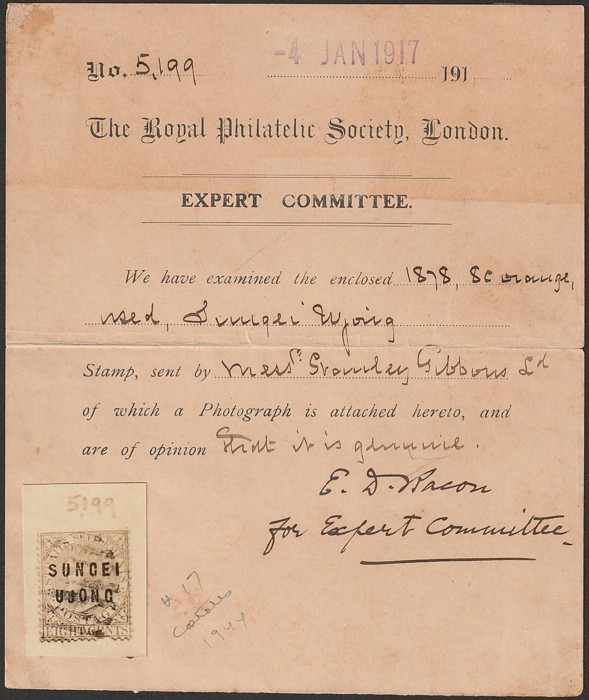 No. 5,199 -4 JAN 1917 191
The Royal Philatelic Society, London.
EXPERT COMMITTEE.
We have examined the enclosed 1878, 8c orange,
used, Sungei Ujong
Stamp, sent by Messrs Stanley Gibbons Ld
of which a Photograph is attached hereto, and
are of opinion that it is genuine.
E. D. Bacon
for Expert Committee
5199
SUNGEI
UJONG
POSTAGE
EIGHT CENTS
# 17
1944